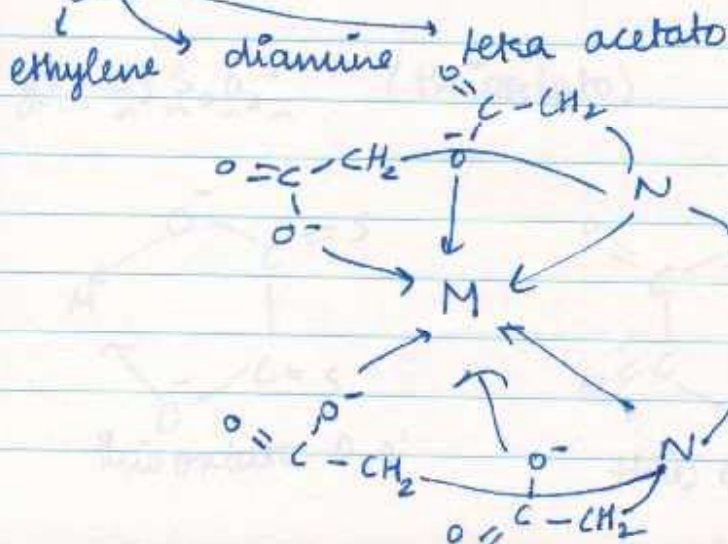 ethylene diamine tetra acetato
O
C - CH2
O = C - CH2 O- N
O-
M
O-
O = C - CH2 O- N
O = C - CH2